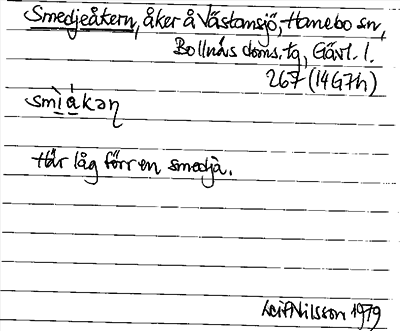 Smedjeåkern, åker å Västansjö, Hanebo sn,
Bollnäs doms. tg, Gävl. l.
267 (14G7h)
smìákəɳ
Här låg förr en smedja.
Leif Nilsson 1979